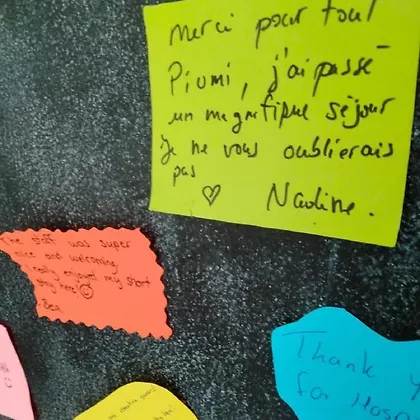 Merci pour tout
Piumi, j'ai passé
un magnifique séjour
Je ne vous oublierais
pas
♡ Nadine.
The staff was super
nice and welcoming
really enjoyed my short
stay here ☺
Ben
Thank
for Hosp